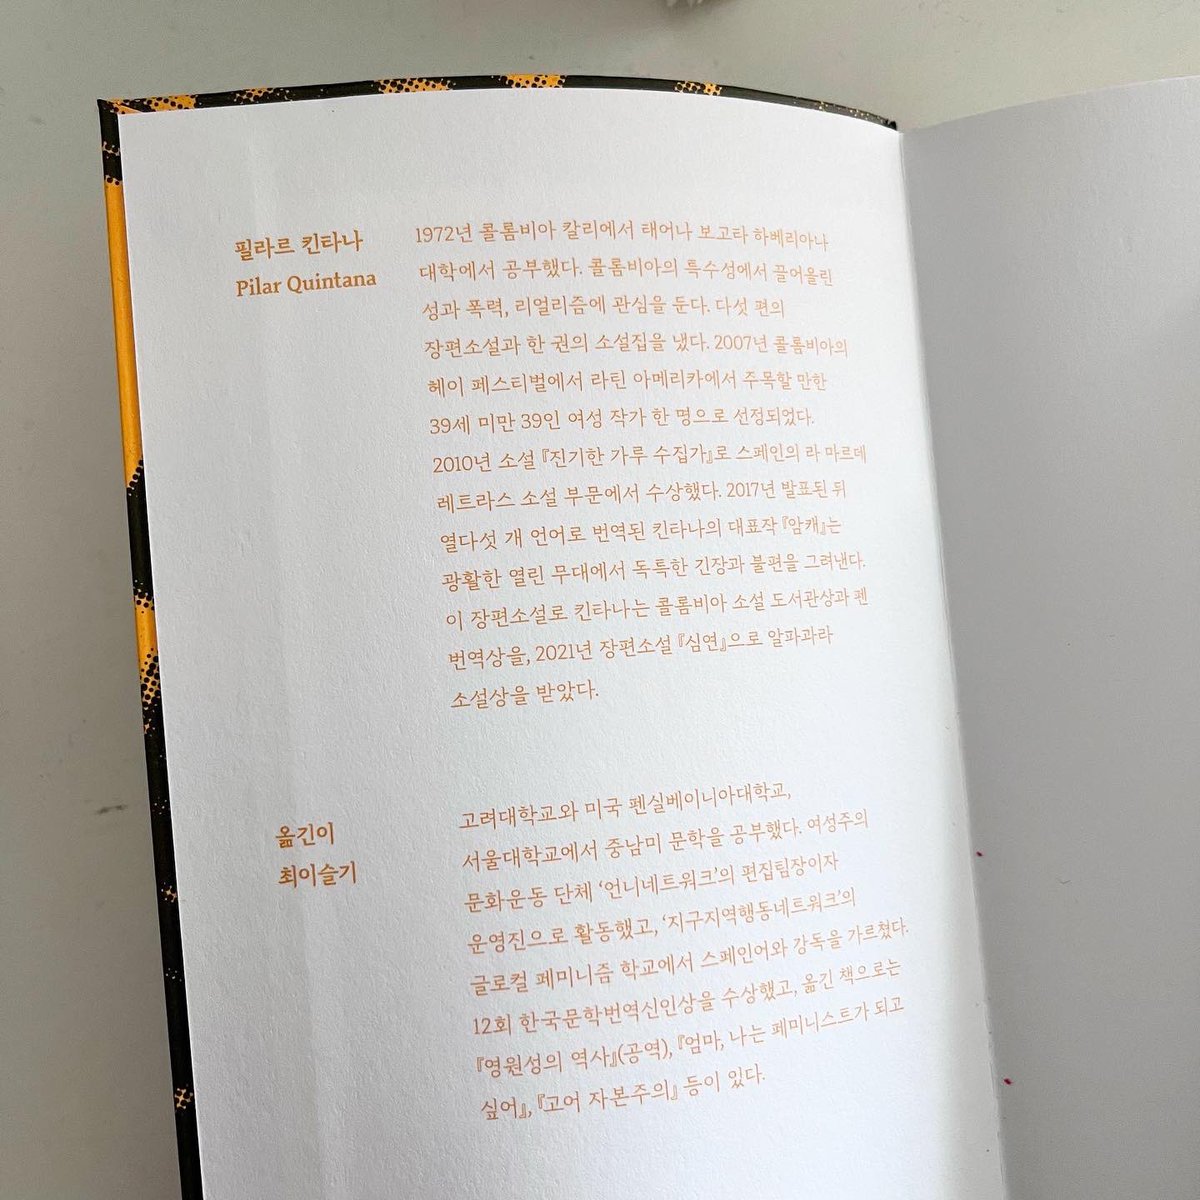 필라르 킨타나
Pilar Quintana
1972년 콜롬비아 칼리에서 태어나 보고타 하베리아나
대학에서 공부했다. 콜롬비아의 특수성에서 끌어올린
성과 폭력, 리얼리즘에 관심을 둔다. 다섯 편의
장편소설과 한 권의 소설집을 냈다. 2007년 콜롬비아의
헤이 페스티벌에서 라틴 아메리카에서 주목할 만한
39세 미만 39인 여성 작가 한 명으로 선정되었다.
2010년 소설 『진기한 가루 수집가』로 스페인의 라 마르데
레트라스 소설 부문에서 수상했다. 2017년 발표된 뒤
열다섯 개 언어로 번역된 킨타나의 대표작 『암캐』는
광활한 열린 무대에서 독특한 긴장과 불편을 그려낸다.
이 장편소설로 킨타나는 콜롬비아 소설 도서관상과 펜
번역상을, 2021년 장편소설 『심연』으로 알파과라
소설상을 받았다.
옮긴이
최이슬기
고려대학교와 미국 펜실베이니아대학교,
서울대학교에서 중남미 문학을 공부했다. 여성주의
문화운동 단체 ‘언니네트워크’의 편집팀장이자
운영진으로 활동했고, ‘지구지역행동네트워크’의
글로컬 페미니즘 학교에서 스페인어와 강독을 가르쳤다.
12회 한국문학번역신인상을 수상했고, 옮긴 책으로는
『영원성의 역사』(공역), 『엄마, 나는 페미니스트가 되고
싶어』, 『고어 자본주의』 등이 있다.